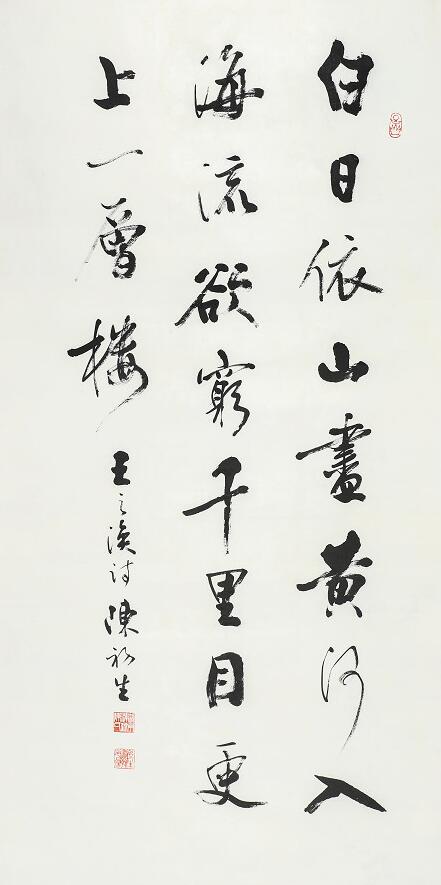 白日依山盡黃河入
海流欲窮千里目更
上一層樓
王之渙詩 陳初生